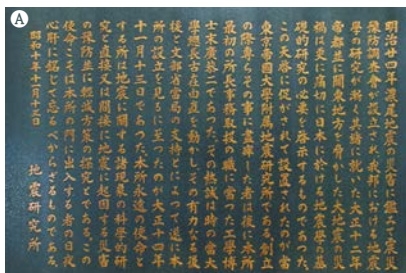 A
明治廿四年濃尾地震の災害に鑑みて震災
豫防調査會が設立され我邦に於ける地震
學の研究が漸く其緒に就いた大正十二年
帝都並に關東地方を脅かした大地震の慘
禍は更に痛切に日本に於ける地震學の基
礎的研究の必要を啓示するものであつた
この天啓に促がされて設置されたのが當
東京帝國大學附屬地震研究所である創立
の際專らその事に盡瘁した者は後に本所
最初の所長事務取扱の職に當つた工學博
士末廣恭二であつたその熱誠は時の當大
學總長古在由直を動かしその有力なる後
援と文部省當局の支持とによつて遂に本
所の設立を見るに至つたのが大正十四年
十一月十三日であつた本所永遠の使命と
する所は地震に關する諸現象の科學的研
究と直接又は間接に地震に起因する災害
の豫防並に輕減方策の探究とであるこの
使命こそは本所の門に出入する者の日夜
心肝に銘じて忘るべからざるものである
昭和十年十一月十三日
地震研究所